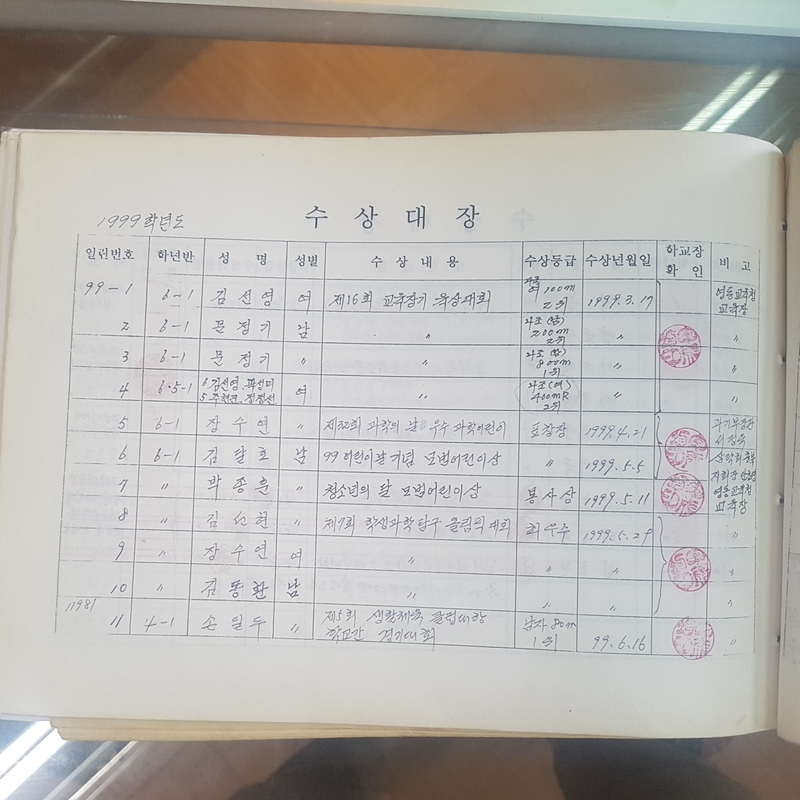 1999학년도
수 상 대 장
일련번호 학년반 성 명 성별 수 상 내 용 수상등급 수상년월일 학교장 확 인 비 고
99-1 6-1 김선영 여 제16회 교육장기 육상대회 여 100m 2위 1999.3.17 영동교육청 교육장
2 6-1 문정기 남 〃 200m 2위 〃 〃
3 6-1 문정기 〃 〃 800m 1위 〃 〃
4 6.5-1 6.김선영. 여 〃 400mR 2위 〃 〃
5 6-1 장수연 〃 제32회 과학의 날 우수 과학어린이 표창장 1999.4.21 과기부장관 서정욱
6 6-1 김달호 남 99 어린이날 기념 모범어린이상 〃 1999.5.5
7 〃 박종훈 〃 청소년의 달 모범어린이상 봉사상 1999.5.11 영동교육청 교육장
8 〃 김선현 〃 제7회 학생과학탐구 올림픽 대회 최우수 1999.5.29 〃
9 〃 장수연 여 〃 〃 〃 〃
10 〃 김동환 남 〃 〃 〃
11981
11 4-1 손일두 〃 제5회 생활체육 클럽대항 학교간 경기대회 남자 80m 1위 99.6.16 〃